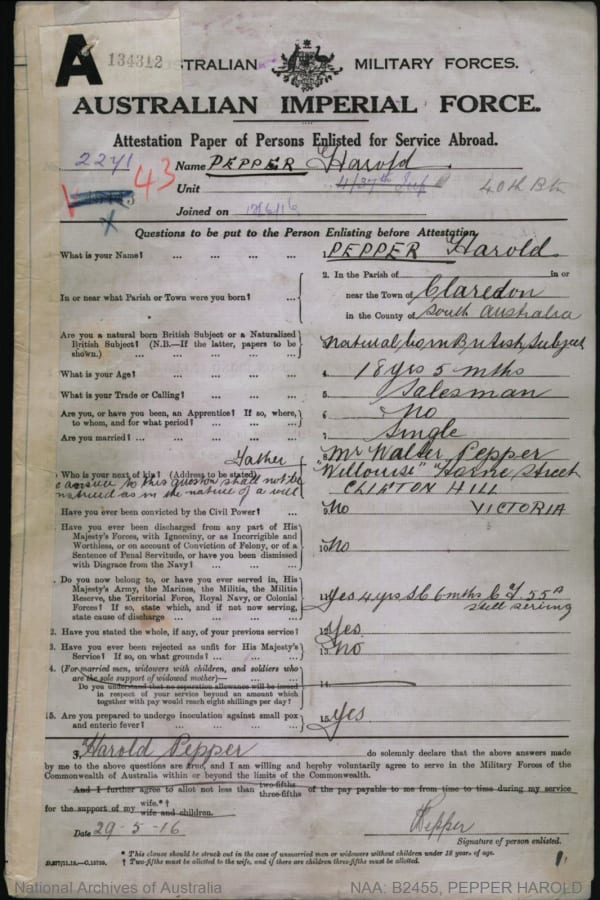 A 134312
AUSTRALIAN MILITARY FORCES.
AUSTRALIAN IMPERIAL FORCE.
Attestation Paper of Persons Enlisted for Service Abroad.
2241 43
Name PEPPER Harold
Unit 40th Bn
Joined on
X
Questions to be put to the Person Enlisting before Attestation.
What is your Name? ... ... ... 1. PEPPER Harold
In or near what Parish or Town were you born? ... 2. In the Parish of in or
near the Town of Claredon
in the County of South Australia
Are you a natural born British Subject or a Naturalized
British Subject? (N.B.—If the latter, papers to be
shown.) ... ... ... Natural born British Subject
What is your Age? ... ... ... 4. 18 yrs 5 mths
What is your Trade or Calling? ... ... 5. Salesman
Are you, or have you been, an Apprentice? If so, where,
to whom, and for what period? ... ... 6. No
Are you married? ... ... ... 7. Single
Father
Who is your next of kin? (Address to be stated) 8. Mr Walter Pepper
answer to this question shall not be
construed as in the nature of a will
Street
CLIFTON HILL
VICTORIA
Have you ever been convicted by the Civil Power? ... 9. No
Have you ever been discharged from any part of His
Majesty's Forces, with Ignominy, or as Incorrigible and
Worthless, or on account of Conviction of Felony, or of a
Sentence of Penal Servitude, or have you been dismissed
with Disgrace from the Navy? ... ... 10. No
Do you now belong to, or have you ever served in, His
Majesty's Army, the Marines, the Militia, the Militia
Reserve, the Territorial Force, Royal Navy, or Colonial
Forces? If so, state which, and if not now serving,
state cause of discharge ... ... ... 11. Yes 4 yrs S.C. 6 mths C.F. 55A
still serving
2. Have you stated the whole, if any, of your previous service? 12. Yes
3. Have you ever been rejected as unfit for His Majesty's
Service? If so, on what grounds? ... ... 13. No
4. (For married men, widowers with children, and soldiers who
are the sole support of widowed mother)—
Do you understand that no separation allowance will be issued
in respect of your service beyond an amount which
together with pay would reach eight shillings per day? 14.
15. Are you prepared to undergo inoculation against small pox
and enteric fever? ... ... ... 15. Yes
I, Harold Pepper do solemnly declare that the above answers made
by me to the above questions are true, and I am willing and hereby voluntarily agree to serve in the Military Forces of the
Commonwealth of Australia within or beyond the limits of the Commonwealth.
And I further agree to allot not less than two-fifths three-fifths of the pay payable to me from time to time during my service
for the support of my wife.*†
wife and children.
Date 29-5-16
HPepper
Signature of person enlisted.
* This clause should be struck out in the case of unmarried men or widowers without children under 18 years of age.
† Two-fifths must be allotted to the wife, and if there are children three-fifths must be allotted.
1.
National Archives of Australia NAA: B2455, PEPPER HAROLD